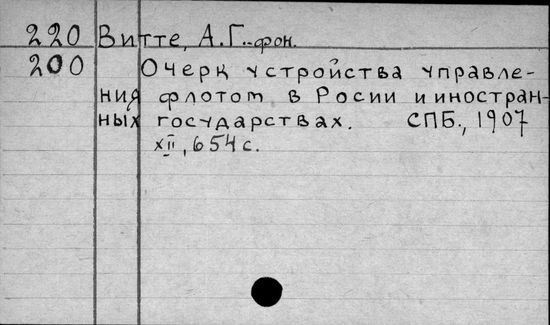 220 Витте, А.Г.-фон.
200 Очерк устройства управле-
ния флотом в Росии и иностран-
ных государствах. СПБ., 1907
XII, 654 с.